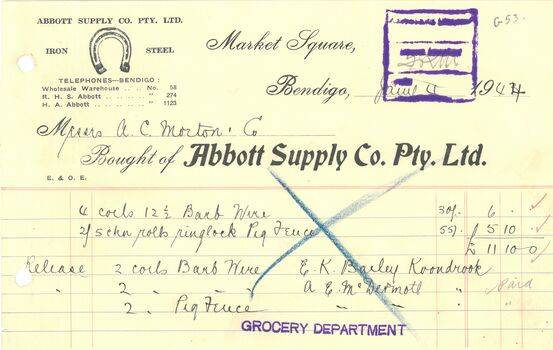 ABBOTT SUPPLY CO. PTY. LTD.
G 53.
IRON STEEL
Market Square,
TELEPHONES—BENDIGO:
Wholesale Warehouse .. .. No. 58
R. H. S. Abbott .. .. .. " 274
H. A. Abbott .. .. .. .. " 1123
Bendigo, June 4 1944
Messrs A. C. Morton & Co
Bought of Abbott Supply Co. Pty. Ltd.
E. & O. E.
4 coils 12½ Barb Wire 30/- 6 . .
2/5 chn rolls ringlock Pig Fence 55/- 5 10 .
£ 11 10 0
Release 2 coils Barb Wire E. K. Bailey Koondrook
" 2 " " A E. McDermott " Paid
2 . Pig Fence " " "
GROCERY DEPARTMENT